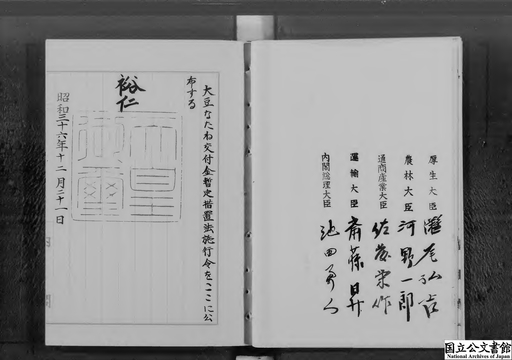 厚生大臣 灘尾弘吉
農林大臣 河野一郎
通商産業大臣 佐藤栄作
運輸大臣 斎藤昇
内閣総理大臣 池田勇人
大豆なたね交付金暫定措置法施行令をここに公
布する
裕仁
天皇
御璽
昭和三十六年十二月二十一日
国立公文書館
National Archives of Japan